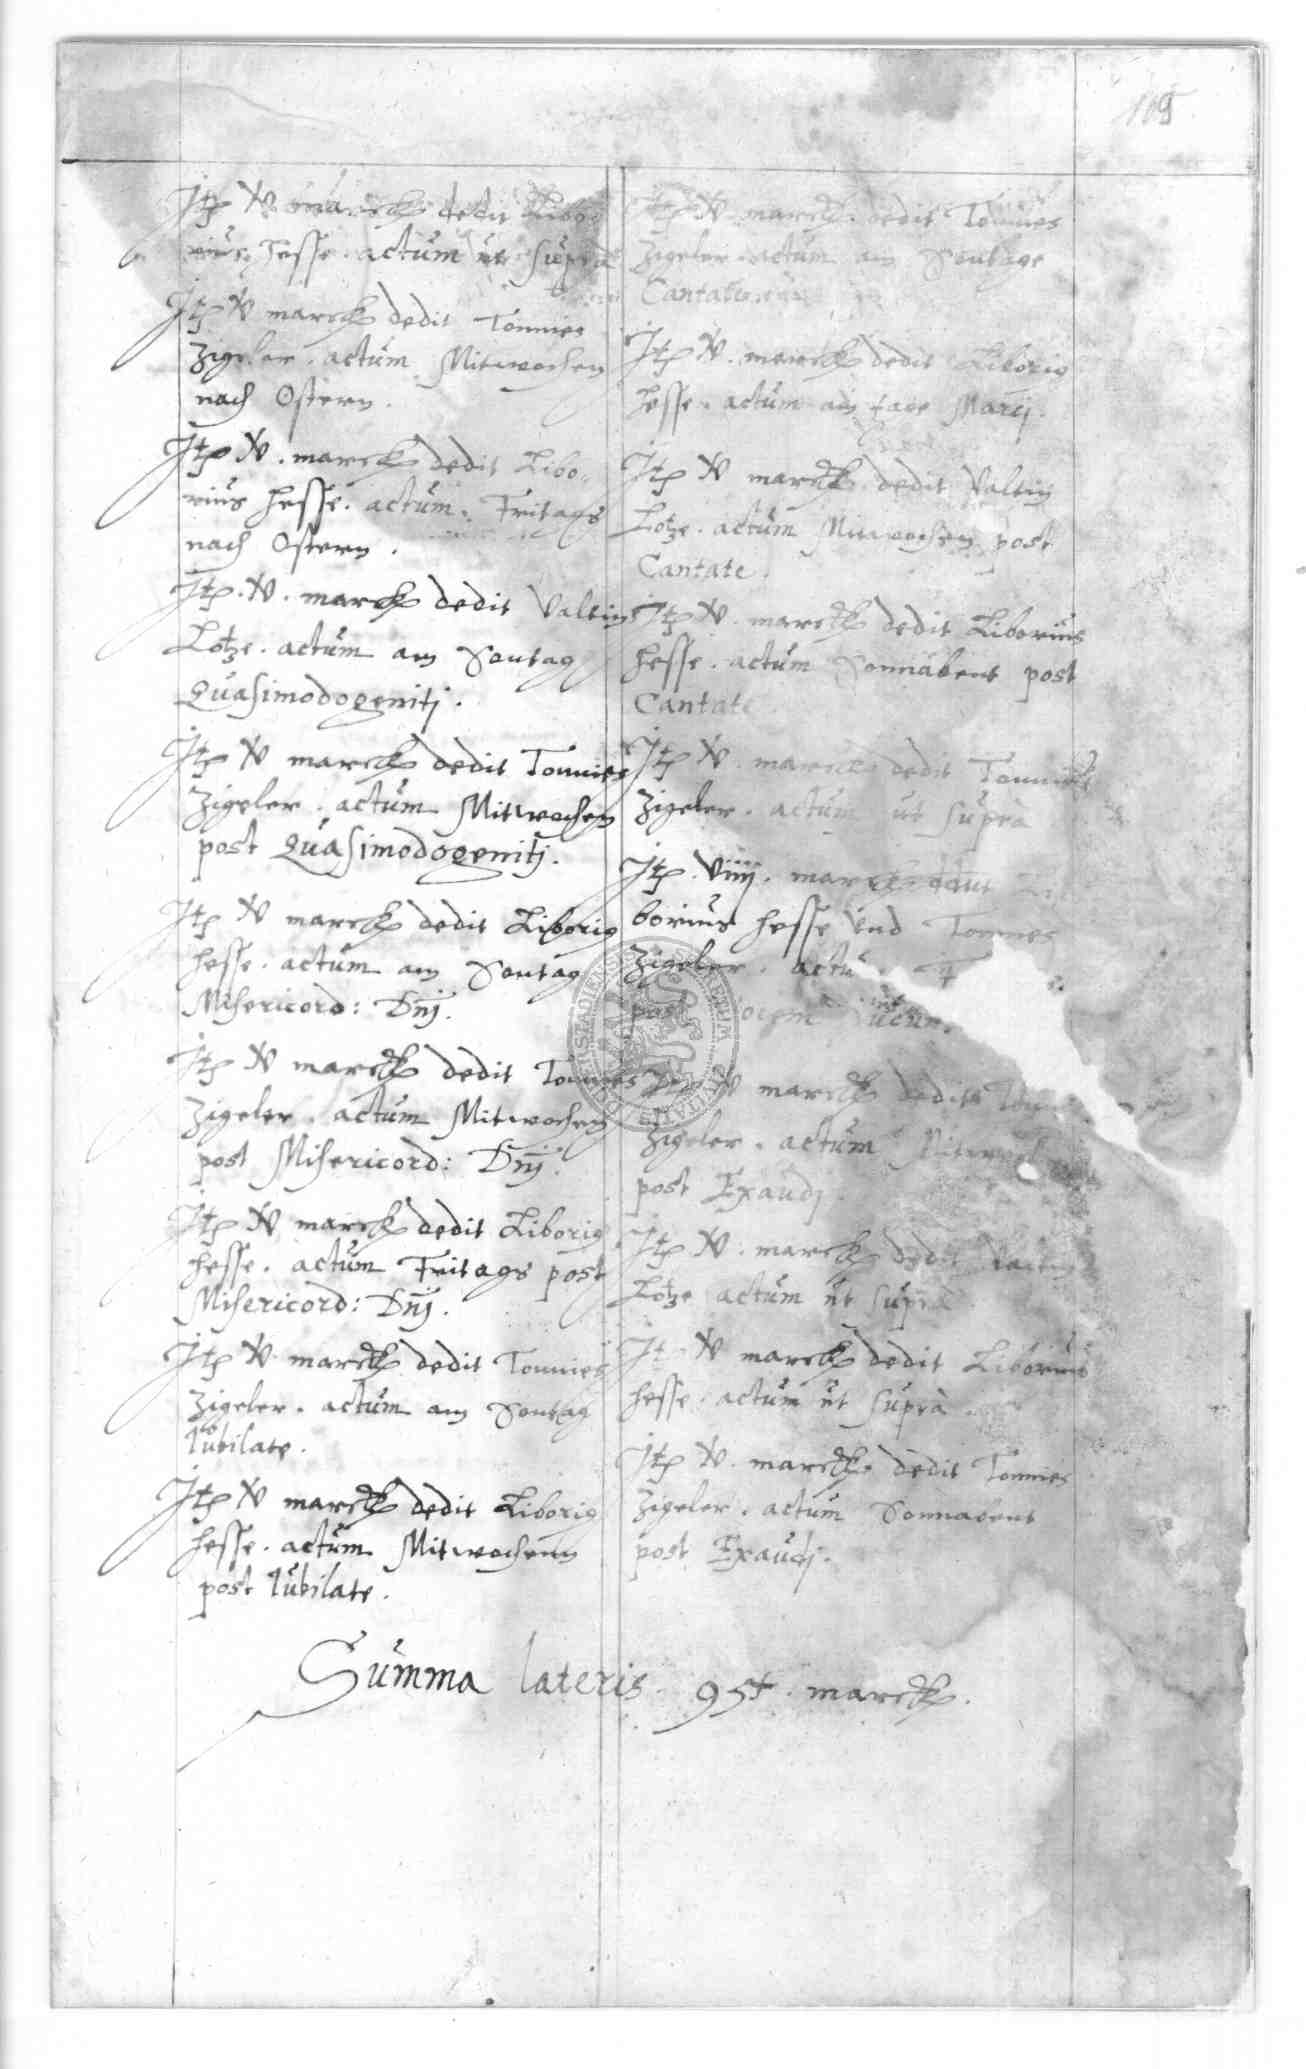 109
Itp V marck dedit Libo
rius Hesse. actum ut supra
Itp V marck dedit Tonnies
Zigeler. actum Mitwochen
nach Ostern.
Itp V. marck dedit Libo„
rius Hesse. actum. Fritags
nach Ostern.
Itp. V. marck dedit Valtin
Lotze. actum am Sontag
Quasimodogenitj.
Itp V marck dedit Tonnies
Zigeler. actum Mitwochen
post Quasimodogenitj.
Itp V marck dedit Liborig
Hesse. actum am Sontag
Misericord: Dnj.
Itp V marck dedit Tonnies
Zigeler. actum Mitwochen
post Misericord: Dnj.
Itp V marck dedit Liborig
Hesse. actum Fritags post
Misericord: Dnj.
Itp V marck dedit Tonnies
Zigeler. actum am Sontag
Iubilate.
Itp V marck dedit Liborig
Hesse. actum Mitwochenn
post Iubilate.
Itp V. marck. dedit Tonnies
Zigeler. actum am Sontage
Cantate
Itp V. marck dedit Liborig
Hesse. actum am tage Marcj.
Itp V marck dedit Valtin
Lotze. actum Mitwochen post
Cantate.
Itp V. marck dedit Liborius
Hesse. actum Sonnabent post
Cantate
Itp V. marck dedit Tonnies
Zigeler. actum ut supra
Itp. Viiij. marck dant Li
borius Hesse und Tonnies
Zigeler. actu
post ocem Iucun.
Itp V marck dedit Ton
Zigeler. actum Mitwoch
post Exaudj.
Itp V. marck dedit Valtin
Lotze actum ut supra
Itp V marck dedit Liborius
Hesse. actum ut supra.
Itp V. marck. dedit Tonnies
Zigeler. actum Sonnabent
post Exaudj.
Summa lateris. 95+. marck.